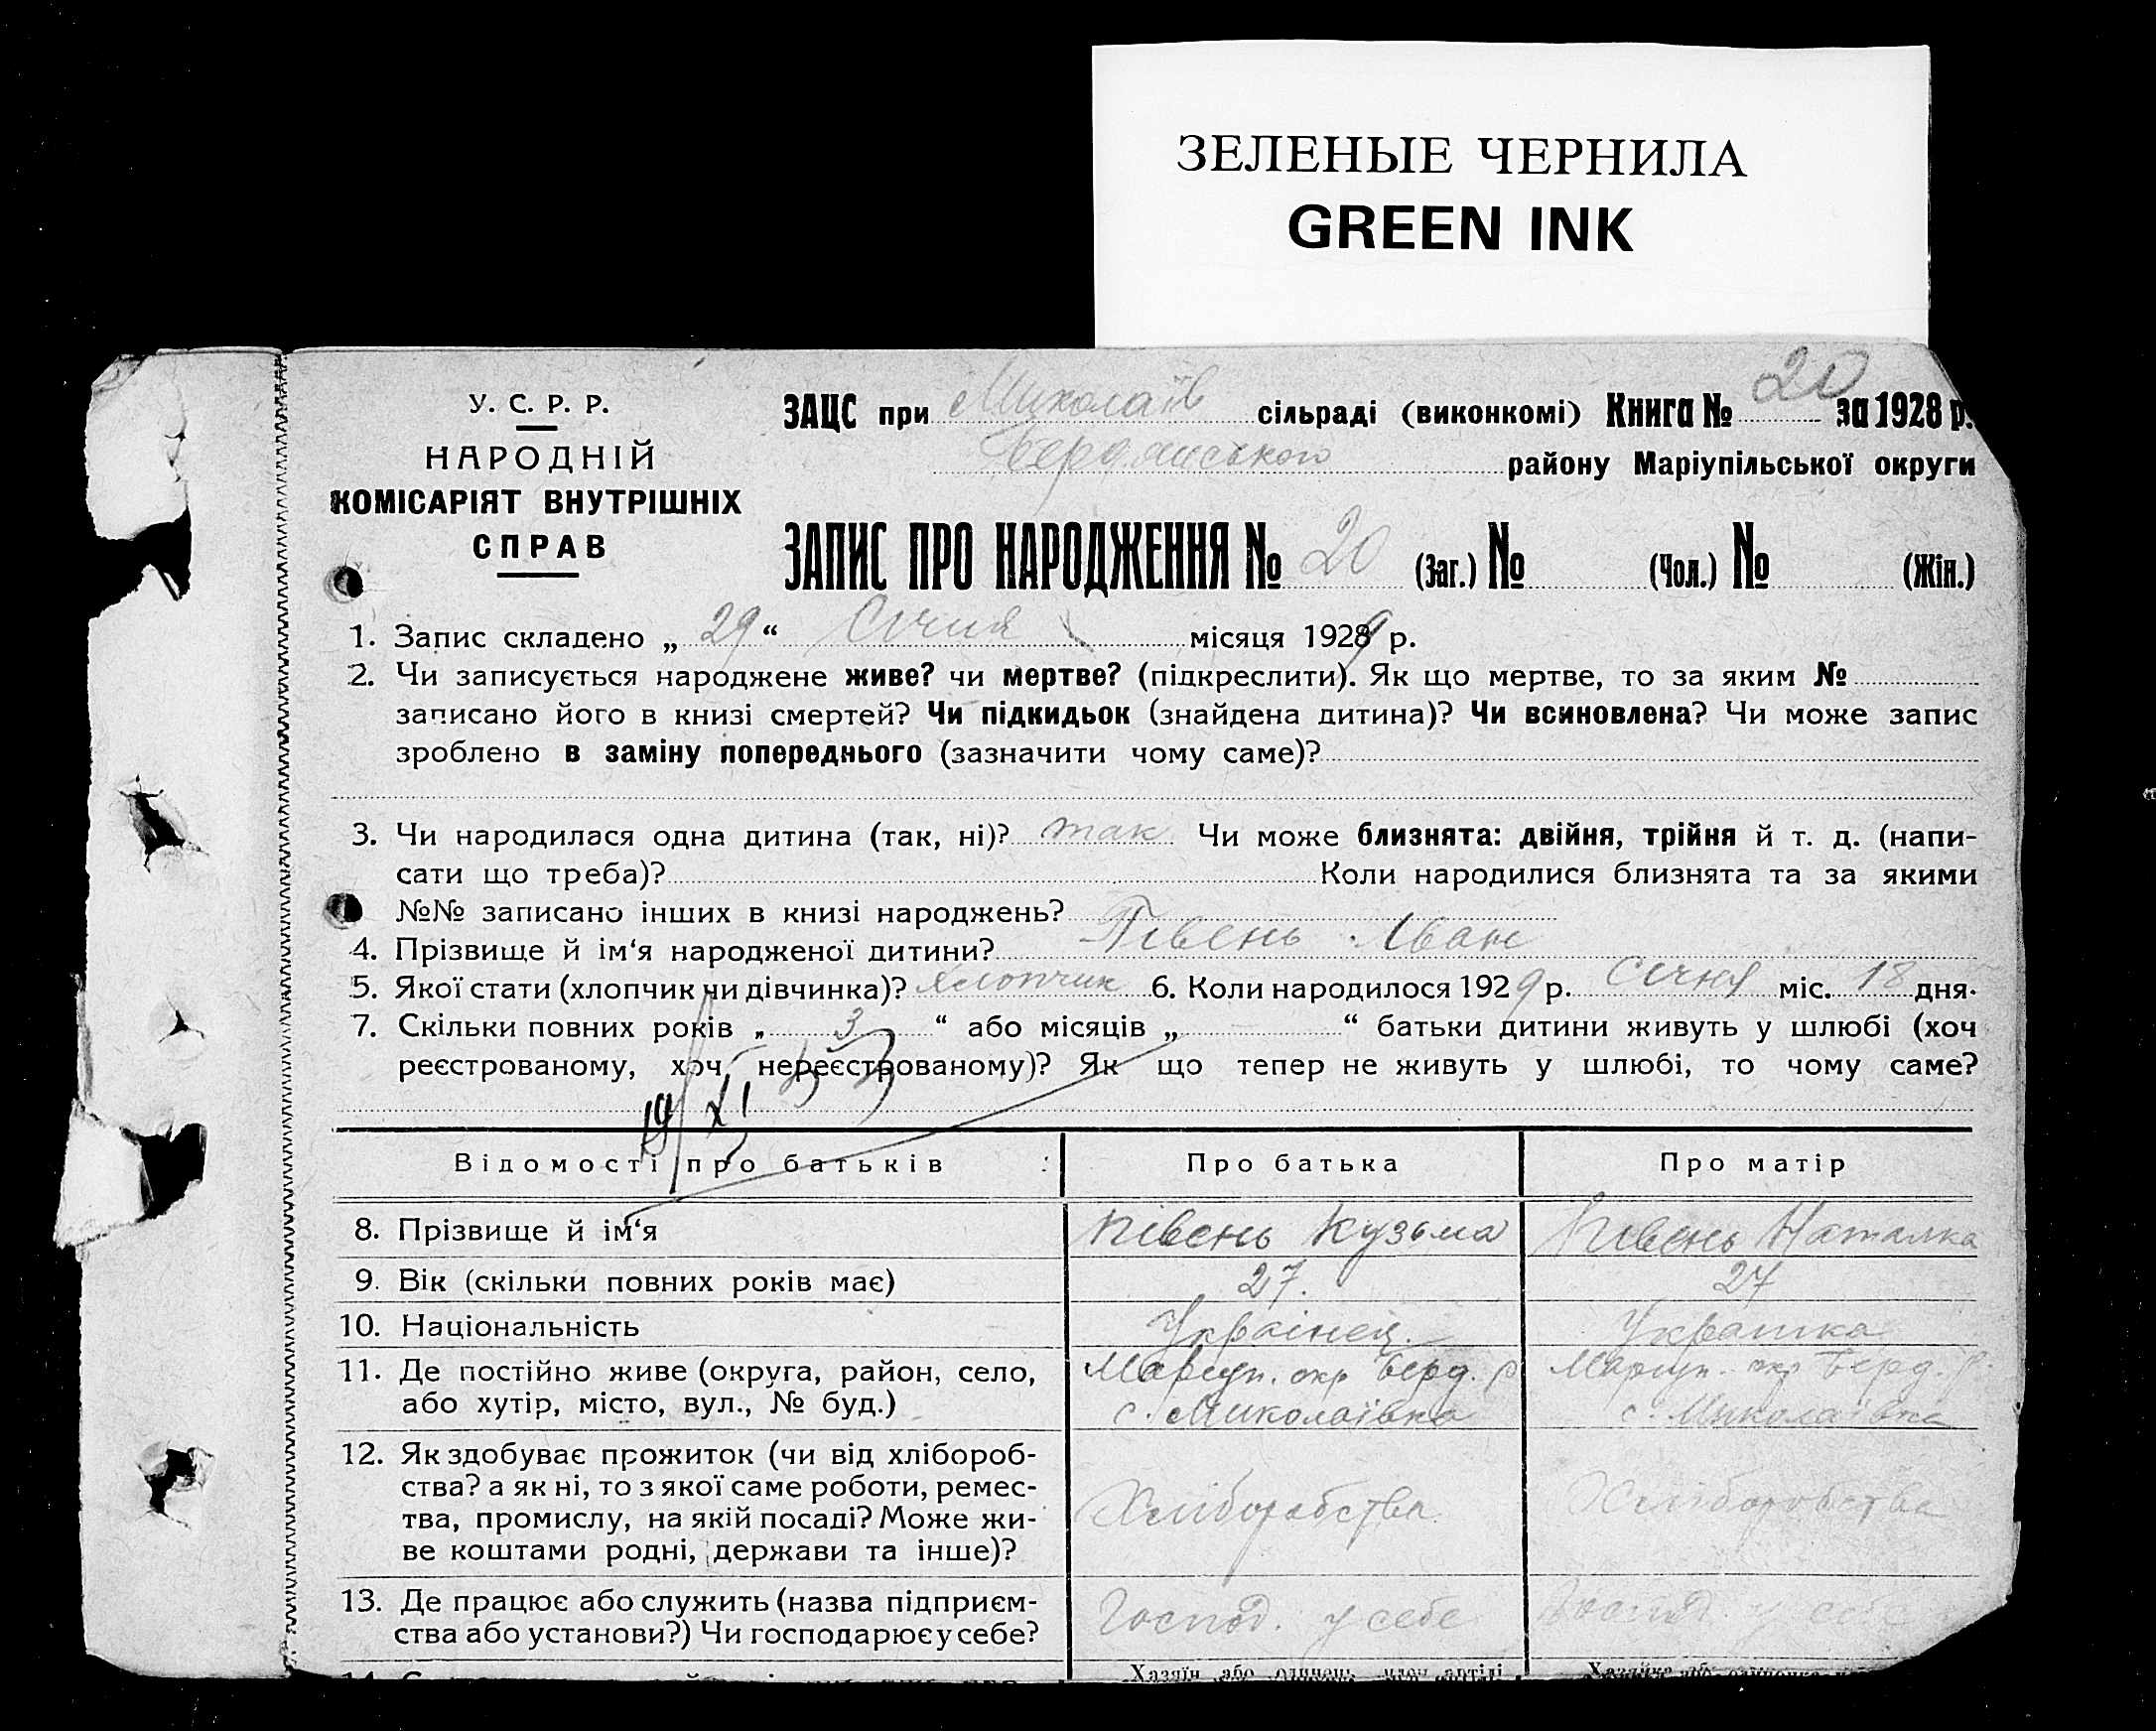 ЗЕЛЕНЫЕ ЧЕРНИЛА
GREEN INK
У. С. Р. Р.
НАРОДНІЙ
КОМІСАРІЯТ ВНУТРІШНІХ
СПРАВ
ЗАЦС при Миколаїв сільраді (виконкомі) Книга № 20 за 1928 р.
Бердянського району Маріупільської округи
ЗАПИС ПРО НАРОДЖЕННЯ № 20 (Заг.) № (Чол.) № (Жін.)
1. Запис складено „ 29 “ Січня місяця 1929 р.
2. Чи записується народжене живе? чи мертве? (підкреслити). Як що мертве, то за яким №
записано його в книзі смертей? Чи підкидьок (знайдена дитина)? Чи всиновлена? Чи може запис
зроблено в заміну попереднього (зазначити чому саме)?
3. Чи народилася одна дитина (так, ні)? так Чи може близнята: двійня, трійня й т. д. (напи-
сати що треба)? Коли народилися близнята та за якими
№№ записано інших в книзі народжень?
4. Прізвище й ім‘я народженої дитини? Півень Іван
5. Якої стати (хлопчик чи дівчинка)? Хлопчик 6. Коли народилося 1929 р. Січня міс. 18 дня.
7. Скільки повних років „ 3 “ або місяців „ “ батьки дитини живуть у шлюбі (хоч
реєстрованому, хоч нереєстрованому)? Як що тепер не живуть у шлюбі, то чому саме?
19/XI
Відомості про батьків Про батька Про матір
8. Прізвище й ім‘я Півень Кузьма Півень Наталка
9. Вік (скільки повних років має) 27. 27
10. Національність Українец. Украинка
11. Де постійно живе (округа, район, село, Маріуп. окр Берд. р Маріуп. окр Берд. р.
або хутір, місто, вул., № буд.) с. Миколаївка с. Миколаївка
12. Як здобуває прожиток (чи від хлібороб-
ства? а як ні, то з якої саме роботи, ремес-
тва, промислу, на якій посаді? Може жи- Хліборобства. Хліборобства
ве коштами родні, держави та інше)?
13. Де працює або служить (назва підприєм- Господ. у себе Господ. у себе
ства або установи?) Чи господарює у себе?
Хазяїн або одинець, член артілі